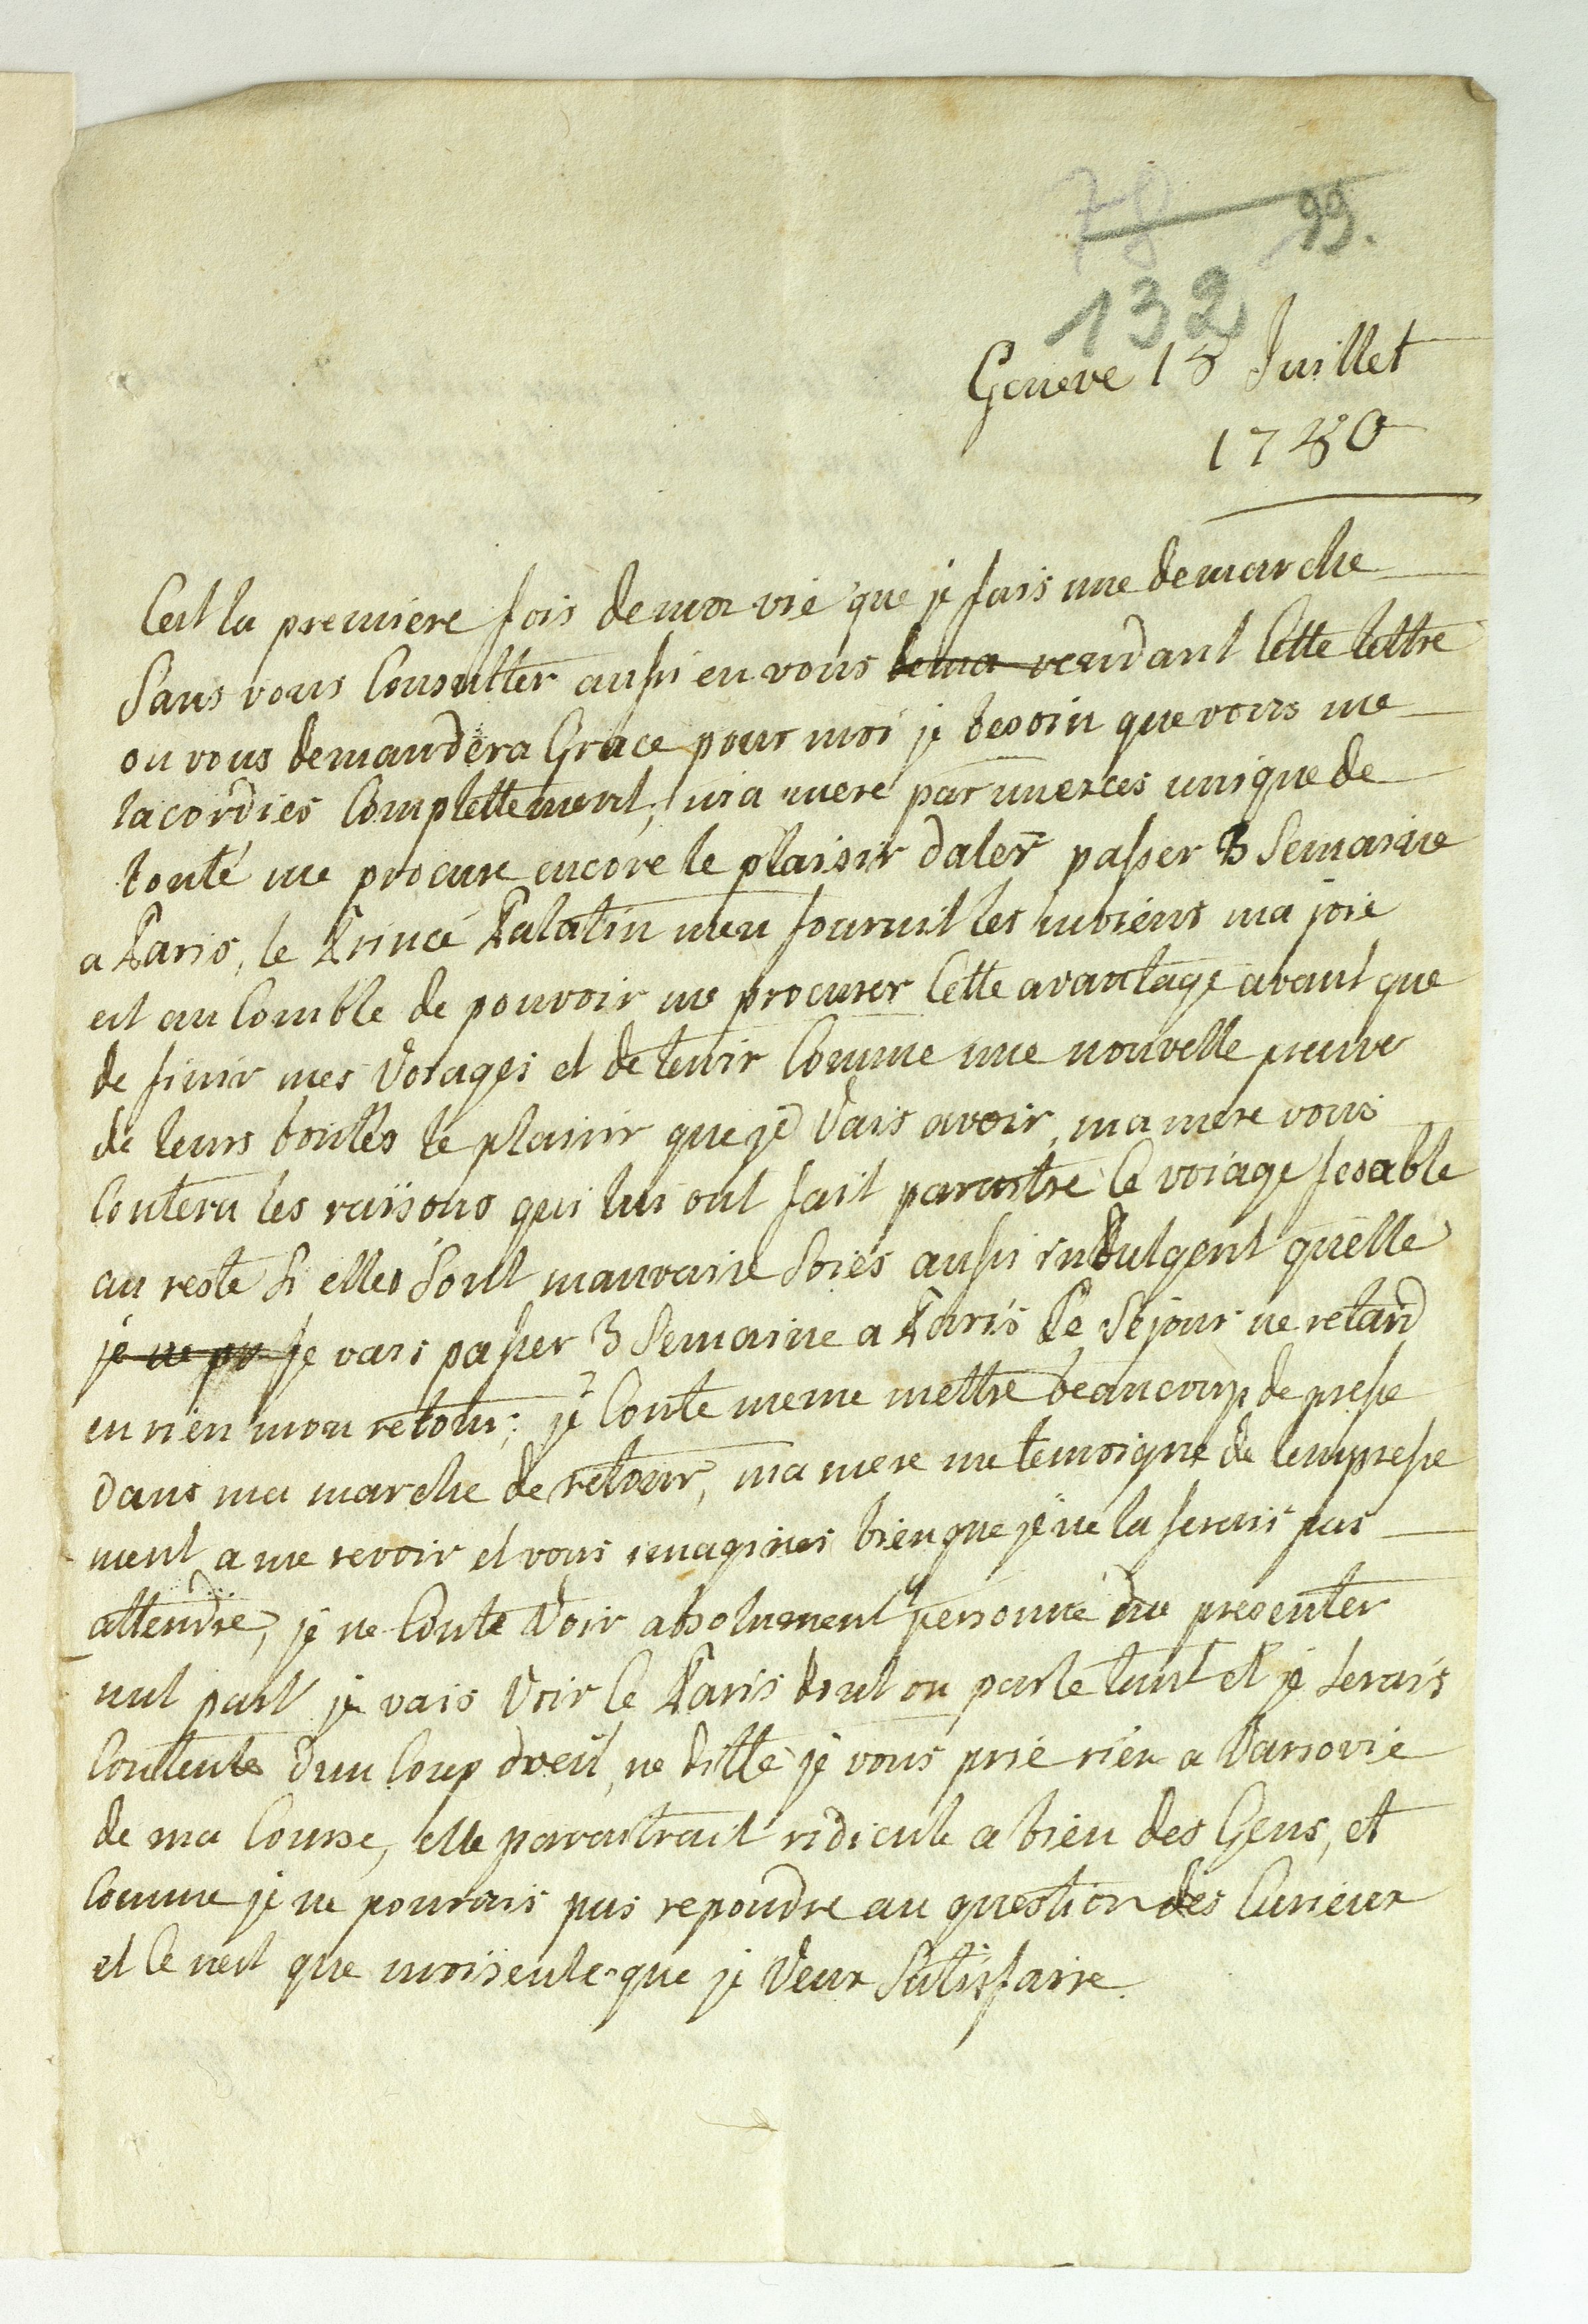 78 99.
132
Geneve 18 Juillet
1780
Cest la premiere fois de ma vie que je fais une demarche
Sans vous Consulter aussi en vous dema rendant Cette lettre
on vous demandera Grace pour moi je besoin que vous me
lacordies Complettement, ma mere par un exces unique de
bonté me procure encore le plaisir daler passer 3 Semaine
a Paris, le Prince Palatin men fournit les moiens ma joie
est au Comble de pouvoir me procurer Cette avantage avant que
de finir mes Voiages et de tenir Comme une nouvelle preuve
de leurs bontés le plaisir que je Vais avoir, ma mere vous
Contera les raisons qui lui ont fait paroitre Ce voiage fesable
au reste Si elles Sont mauvaise Soiés aussi indulgent quelle
je ne pu Je vais passer 3 Semaine a Paris Ce Sejour ne retard
en rien mon retour; je Conte meme mettre beaucoup de presse
dans ma marche de retour, ma mere me temoigne de lempresse
ment a me revoir et vous imagines bien que je ne la ferais pas
attendre, je ne Conte Voir absolument personne du presenter
nul part je vais Voir Ce Paris dont on parle tant et je serais
Contente dun Coup doeil, ne ditte je vous prie rien a Varsovie
de ma Course, elle paraitrait ridicule a bien des Gens, et
Comme je ne pourais pas repondre au question des Curieux
et Ce nest que moi seule que je Veux Satisfaire.